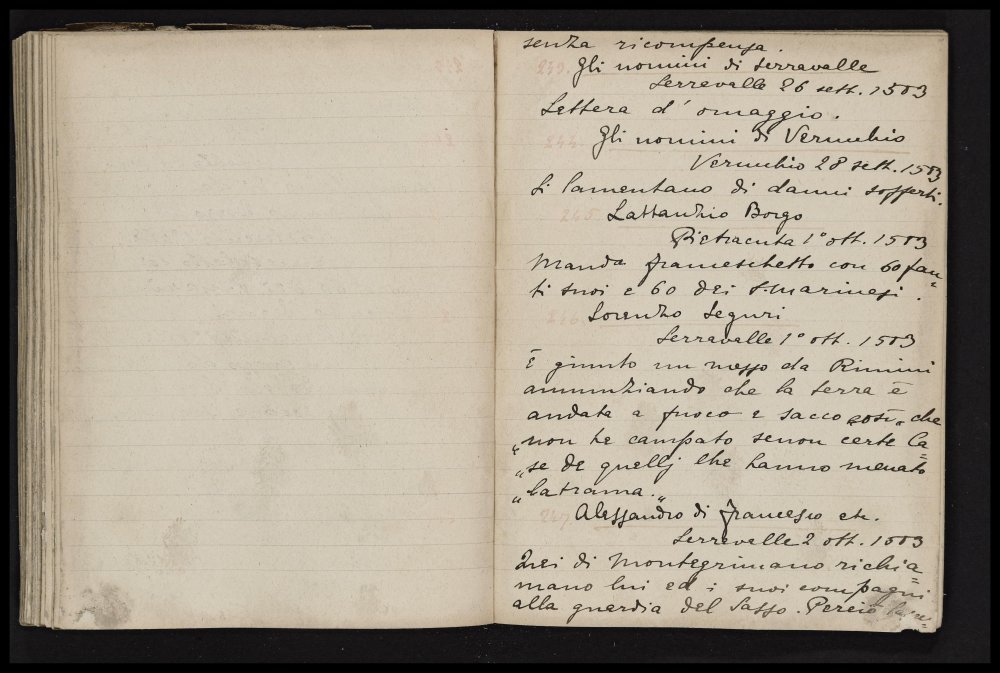 senza ricompensa.
Gli uomini di Serravalle
Serravalle 26 sett. 1503
Lettera d'omaggio.
Gli uomini di Verucchio
Verucchio 28 sett. 1503
Si lamentano di danni sofferti.
Lattanzio Borgo
Pietracuta 1° ott. 1503
Manda Franceschetto con 60 fan=
ti suoi e 60 dei S. Marinesi.
Lorenzo Seguri
Serravalle 1° ott. 1503
È giunto un messo da Rimini
annunziando che la terra è
andata a fuoco e sacco così „ che
„ non he campato senon certe Ca=
„ se de quellj che hanno menato
„ la trama. „
Alessandro di Francesco etc.
Serravalle 2 ott. 1503
Quei di Montegrimano richia=
mano lui ed i suoi compagni
alla guardia del Sasso. Perciò